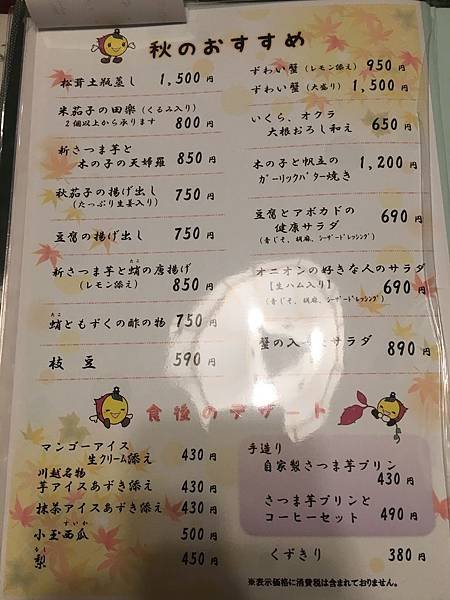 秋のおすすめ
松茸土瓶蒸し 1,500円
米茄子の田樂(くるみ入り)
2個以上から承ります 800円
新さつま芋と
木の子の天婦羅 850円
秋茄子の揚げ出し
(たっぷり生姜入り) 750円
豆腐の揚げ出し 750円
たこ
新さつま芋と蛸の唐揚げ
(レモン添え) 850円
たこ
蛸ともずくの酢の物 750円
枝豆 590円
ずわい蟹(レモン添え) 950円
ずわい蟹(大盛り) 1,500円
いくら、オクラ
大根おろし和え 650円
木の子と帆立の
ガーリックバター焼き 1,200円
豆腐とアボカドの
健康サラダ 690円
(青じそ、胡麻、シーザードレッシング)
オニオンの好きな人のサラダ
【生ハム入り】 690円
(青じそ、胡麻、シーザードレッシング)
蟹の入 サラダ 890円
食後のデザート
マンゴーアイス
生クリーム添え 430円
川越名物
芋アイスあずき添え 430円
抹茶アイスあずき添え 430円
すいか
小玉西瓜 500円
なし
梨 450円
手造り
自家製さつま芋プリン
430円
さつま芋プリンと
コーヒーセット 490円
くずきり 380円
※表示価格に消費税は含まれておりません。